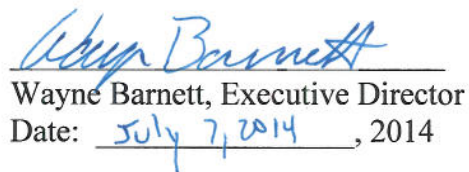 Wayne Barnett
Wayne Barnett, Executive Director
Date: July 7, 2014, 2014